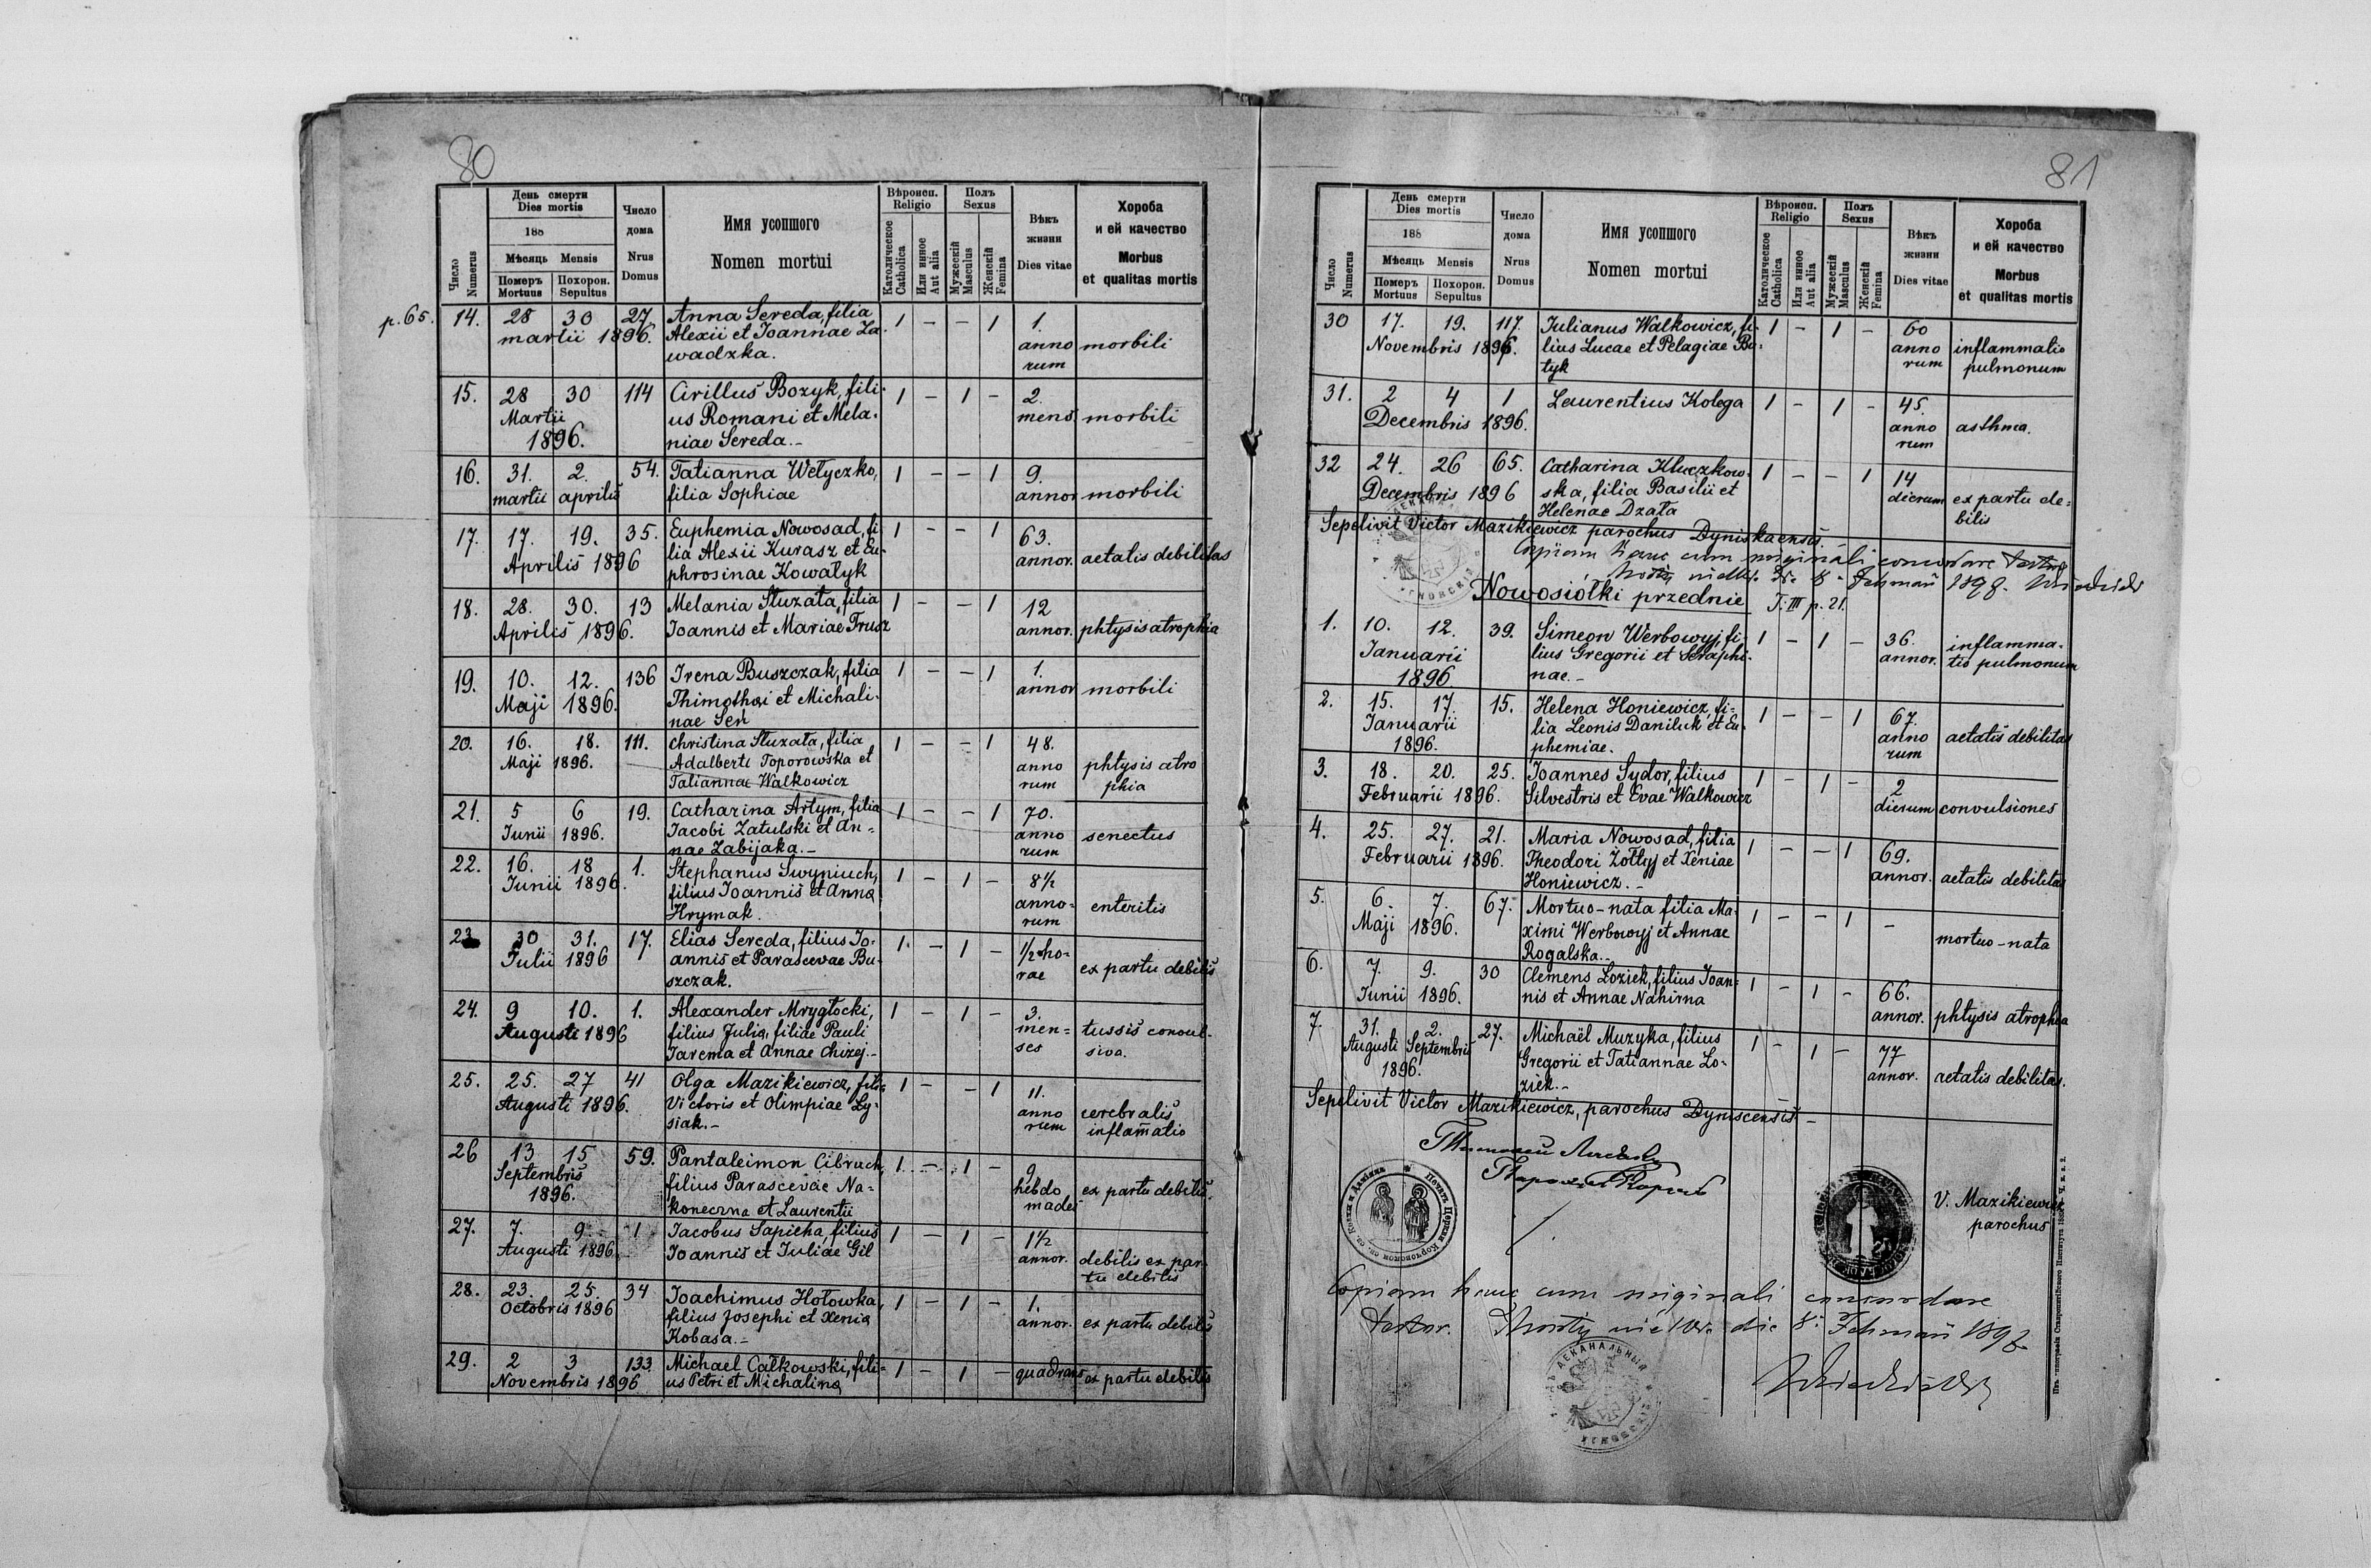 80
День смерти
Dies mortis
188
Мѣсяць Mensis
Померъ Похорон.
Mortuus Sepultus
Число
Numerus
Число
дома
Nrus
Domus
Имя усопшого
Nomen mortui
Вѣроисп.
Religio
Католическое
Catholica
Или инное
Aut alia
Полъ
Sexus
Мужескій
Masculus
Женскій
Femina
Вѣкъ
жизни
Dies vitae
Хороба
и ей качество
Morbus
et qualitas mortis
p. 65. 14. 28 30 27 Anna Sereda, filia 1 – – 1 1.
martii 1896. Alexii et Joannae Za- anno morbili
wadzka. rum
15. 28 30 114 Cirillus Bozyk, fili- 1 – 1 – 2.
Martii us Romani et Mela- mens. morbili
1896. niae Sereda.–
16. 31. 2. 54. Tatianna Wełyczko, 1 – – 1 9.
martii aprilis filia Sophiae annor morbili
17. 17. 19. 35. Euphemia Nowosad, fi- 1 – – 1 63.
Aprilis 1896 lia Alexii Kurasz et Eu- annor. aetatis debilitas
phrosinae Kowalyk
18. 28. 30. 13 Melania Słuzała, filia 1 – – 1 12
Aprilis 1896. Joannis et Mariae Trusz annor. phtysis atrophia
19. 10. 12. 136 Irena Buszczak, filia 1 – – 1 1.
Maji 1896. Thimothei et Michali- annor morbili
nae Sen
20. 16. 18. 111. Christina Słuzała, filia 1 – – 1 48.
Maji 1896. Adalberti Toporowska et anno phtysis atro
Tatiannae Walkowicz rum phia
21. 5 6 19. Catharina Artym, filia 1 – – 1 70.
Junii 1896. Jacobi Zatulski et An- anno senectus
nae Zabijaka.– rum
22. 16. 18 1. Stephanus Swyniuch, 1 – 1 – 8½
Junii 1896. filius Joannis et Anna anno- enteritis
Hrymak. rum
23 30 31. 17. Elias Sereda, filius Jo- 1. – 1 – ½ ho-
Julii 1896 annis et Parascevae Bu- rae ex partu debilis
szczak.
24. 9 10. 1. Alexander Mrygłocki, 1 – 1 – 3.
Augusti 1896 filius Julia, filiae Pauli men- tussis convul-
Jarema et Annae Chizej.– ses siva.
25. 25. 27 41 Olga Mazikiewicz, filia 1 – – 1 11.
Augusti 1896. Victoris et Olimpiae Ły- anno cerebralis
siak.– rum inflamatio
26 13 15 59. Pantaleimon Cibruch, 1. – 1 – 9
Septembris filius Parascevae Na- hebdo ex partu debilis.
1896. koneczna et Laurentii mades
27. 7. 9– 1 Jacobus Sapieha, filius 1 – 1 – 1½
Augusti 1896. Joannis et Juliae Gil annor. debilis ex par
tu debilis
28. 23. 25. 34 Joachimus Hołowka, 1 – 1 – 1.
Octobris 1896 filius Josephi et Xenia annor. ex partu debilis
Kobasa.–
29. 2 3 133. Michael Całkowski, fili- 1 – 1 – quadrans ex partu debilis
Novembris 1896 us Petri et Michalina
81
День смерти
Dies mortis
188
Мѣсяць Mensis
Померъ Похорон.
Mortuus Sepultus
Число
Numerus
Число
дома
Nrus
Domus
Имя усопшого
Nomen mortui
Вѣроисп.
Religio
Католическое
Catholica
Или инное
Aut alia
Полъ
Sexus
Мужескій
Masculus
Женскій
Femina
Вѣкъ
жизни
Dies vitae
Хороба
и ей качество
Morbus
et qualitas mortis
30 17. 19. 117. Julianus Walkowicz, fi- 1 – 1 – 60
Novembris 1896. lius Lucae et Pelagiae Bo- anno inflammatio
tyk rum pulmonum
31. 2 4 1 Laurentius Kolega 1 – 1 – 45.
Decembris 1896. anno asthma.
rum
32 24. 26 65. Catharina Kluczkow- 1 – – 1 14
Decembris 1896 ska, filia Basilii et dierum ex partu de-
Helenae Dzała bilis
Sepelivit Victor Mazikiewicz parochus Dyniskaensis.–
Copiam hanc cum originali concordare testor
8. 1898.
Nowosiółki przednie T. III p. 21.
1. 10. 12. 39. Simeon Werbowyj, fi- 1 – 1 – 36.
Januarii lius Gregorii et Seraphi- annor. inflamma-
1896. nae.– tio pulmonum
2. 15. 17. 15. Helena Honiewicz, fi- 1 – – 1 67.
Januarii lia Leonis Daniluk et Eu- anno aetatis debilitas
1896. phemiae. rum
3. 18. 20. 25. Joannes Sydor, filius 1 – 1 – 2
Februarii 1896. Silvestris et Evae Walkowicz dierum convulsiones
4. 25. 27. 21. Maria Nowosad, filia 1 – – 1 69.
Februarii 1896. Theodori Żołtyj et Xeniae annor. aetatis debilitas
Honiewicz.–
5. 6. 7. 67. Mortuo-nata filia Ma- 1 – – 1 –
Maji 1896. ximi Werbowyj et Annae mortuo-nata
Rogalska.–
6. 7. 9. 30 Clemens Łoziek, filius Joan- 1 – 1 – 66.
Junii 1896. nis et Annae Nahirna annor. phtysis atrophia
7. 31. 2. 27. Michaël Muzyka, filius 1 – 1 – 77
Augusti Septembris Gregorii et Tatiannae Ło- annor. aetatis debilitas.
1896. ziek.–
Sepelivit Victor Mazikiewicz, parochus Dyniscensis.–
V. Mazikiewicz
parochus
Copiam hanc cum originali concordare
testor. die 8. 1898
ДЕКАНАЛЬНЫЙ